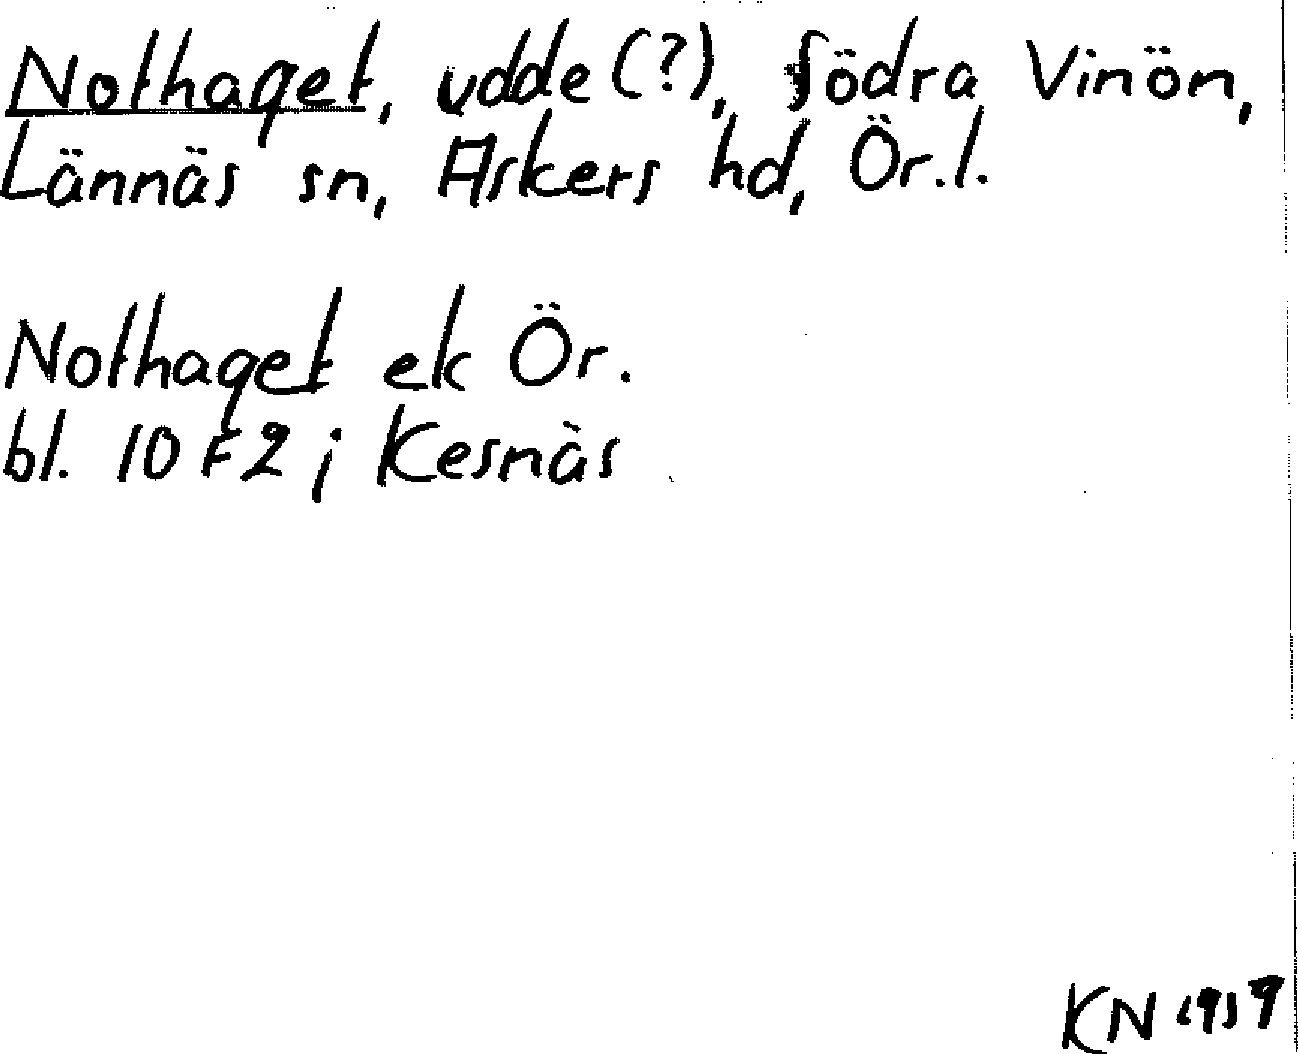 Nothaget, udde (?), Södra Vinön,
Lännäs sn, Askers hd, Ör.l.
Nothaget ek Ör.
bl. 10 F2; Kesnäs
KN 1959